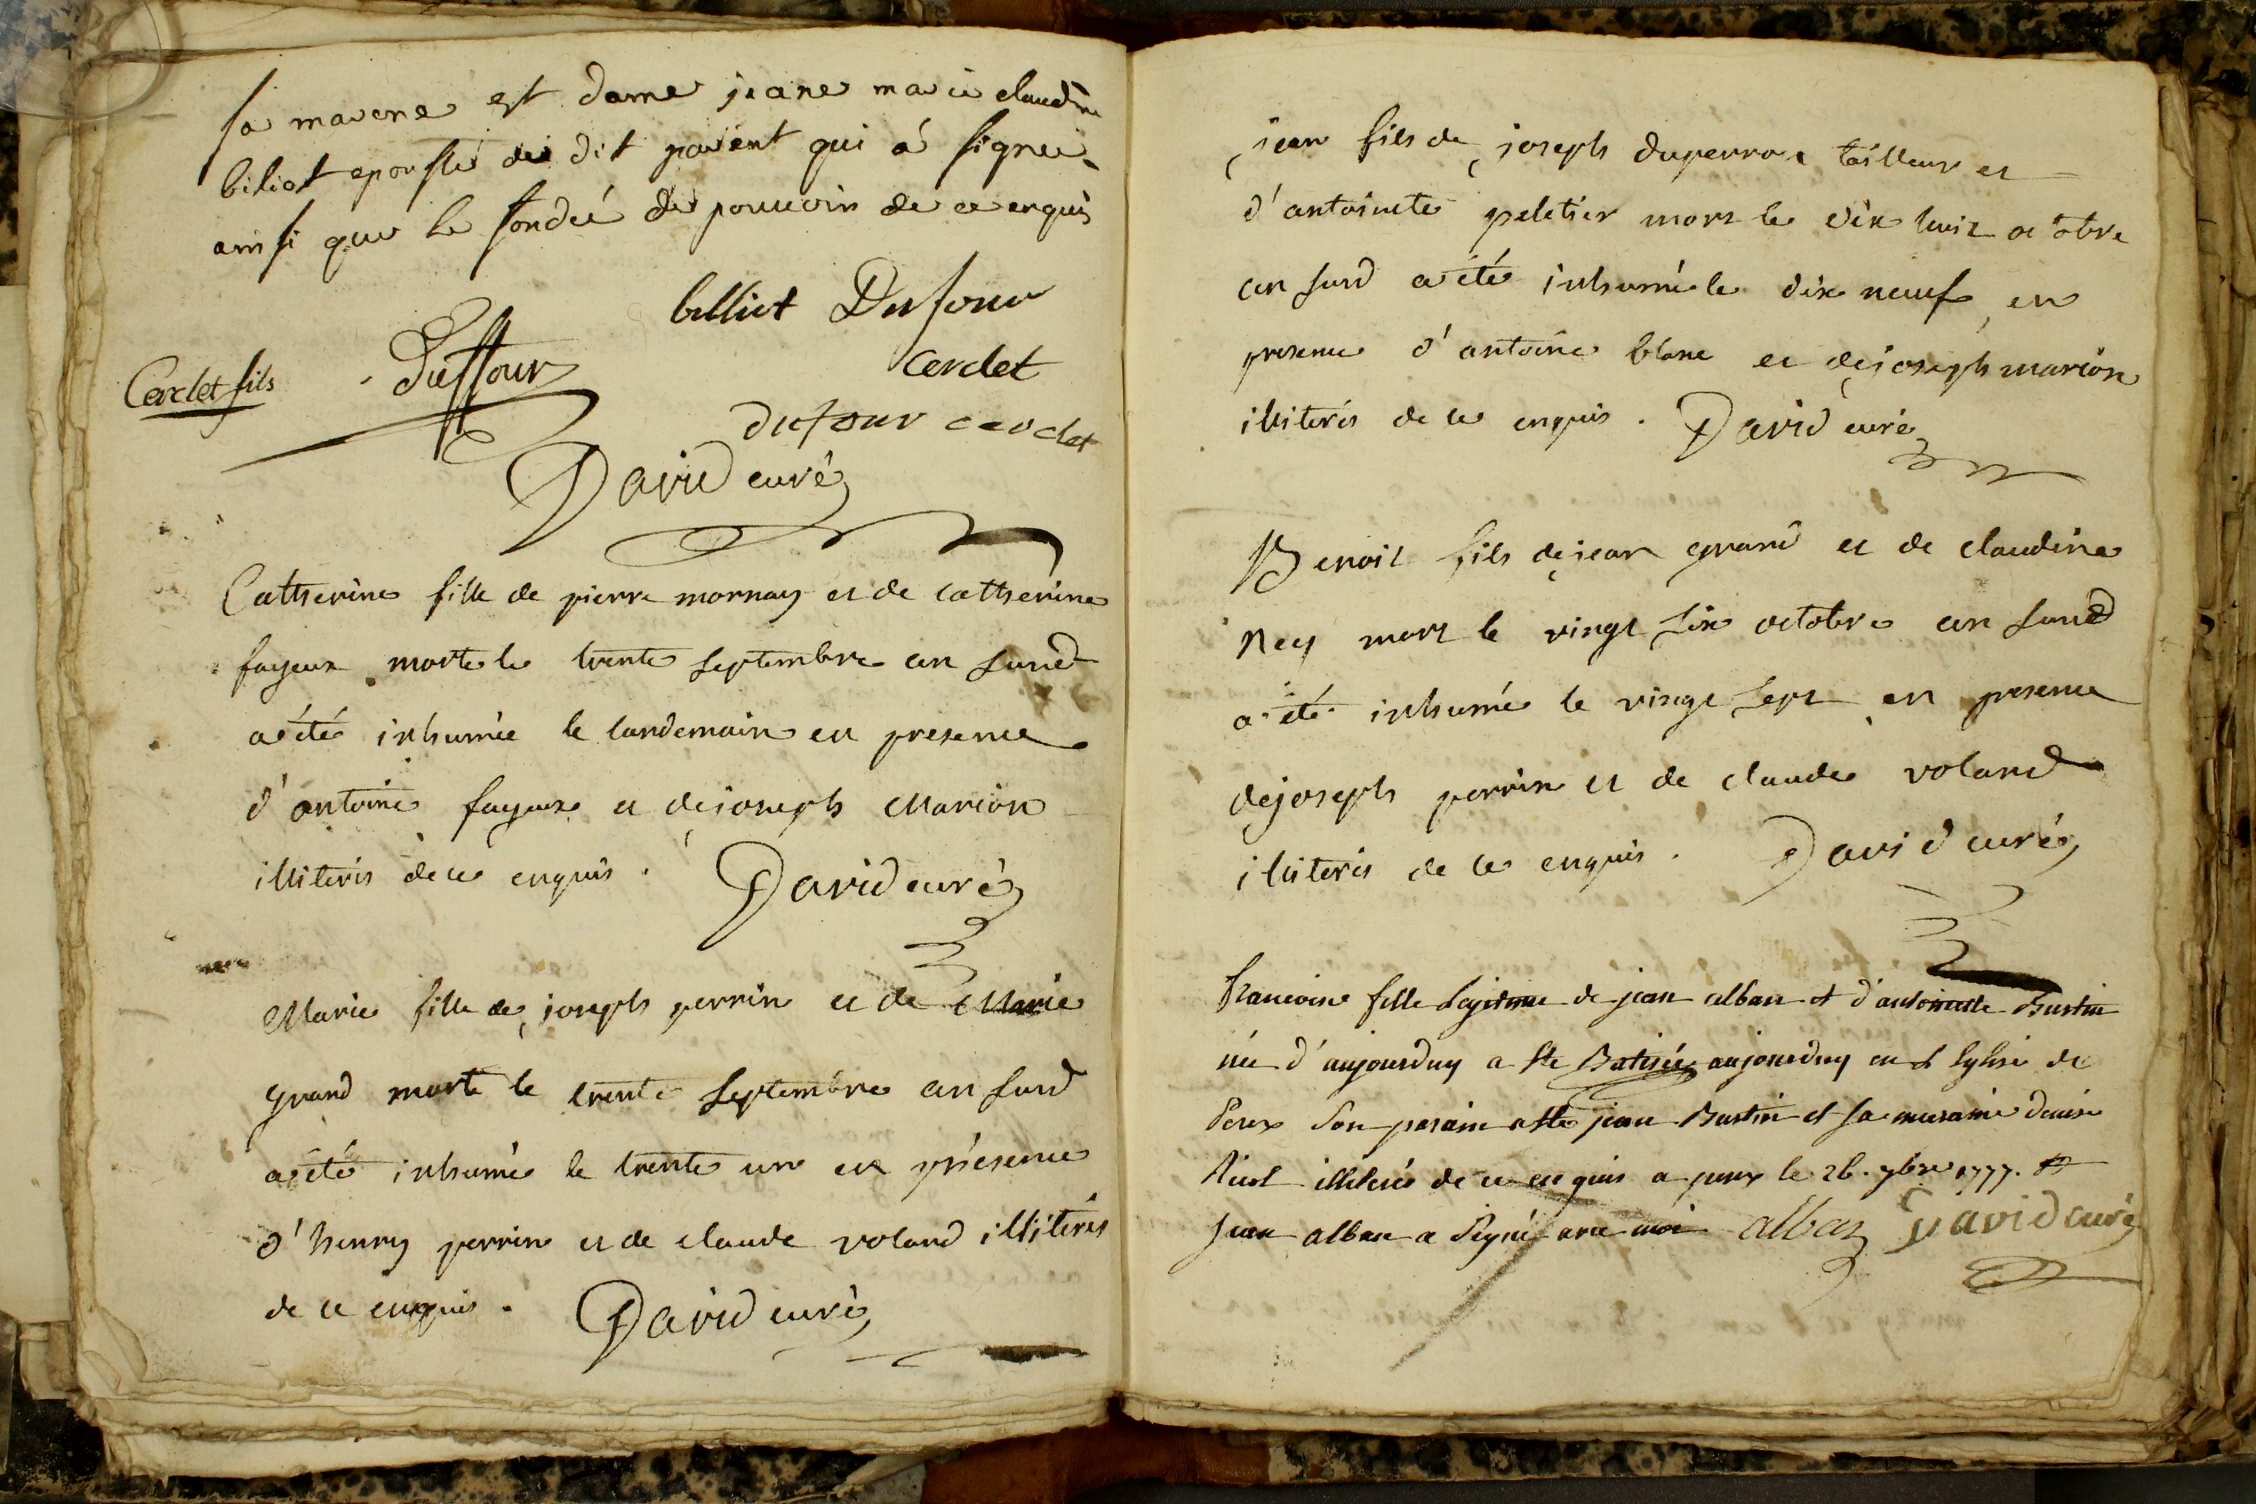 sa marene est dame jeane marie claudine
biliot epousse du dit parent qui a signee
ainsi que le fondeé de pouvoir de ce enquis
billiot Dufour
Cerclet fils duffour cerclet
dufour cerclet
David curé
Catherine fille de pierre mornay et de catherine
fayeux morte le trente septembre an sund
a été inhumée le landemain en presence
d'antoine fayeux et de joseph Marion
illiterés de ce enquis. David curé
Marie fille de joseph perrin et de Marie
grand morte le trente septembre an surd
a été inhumée le trente un en présence
d'henry perrin et de claude voland illiterés
de ce enquis. David curé
jean fils de joseph duperron tailleur et
d'antoinette peletier mort le dix huit octobre
an surd a été inhumé le dix neuf en
presence d'antoine blanc et de joseph marion
illiterés de ce enquis. David curé
Benoit fils de jean grand et de claudine
Ney mort le vingt six octobre an surd
a été inhumé le vingt sept en presence
de joseph perrin et de claude voland
illiterés de ce enquis. David curé
francoise fille legitime de jean alban et d'antoinette Burtin
née d'aujourduy a ste Batisée aujourduy en l Eglise de
Perex son parain a ste jean Burtin et sa maraine denise
illiterés de ce enquis a perex le 26. 7bre 1777. et
jean alban a signé avec moi alban David curé